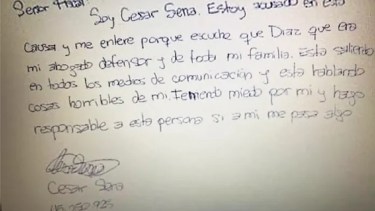 Señor Fiscal
Soy Cesar Sena. Estoy acusado en esta
causa y me entere porque escuche que Diaz que era
mi abogado defensor y de toda mi familia. Esta saliendo
en todos los medios de comunicación y esta hablando
cosas horribles de mi. temiendo miedo por mi y hago
responsable a esta persona si a mi me pasa algo
Cesar Sena